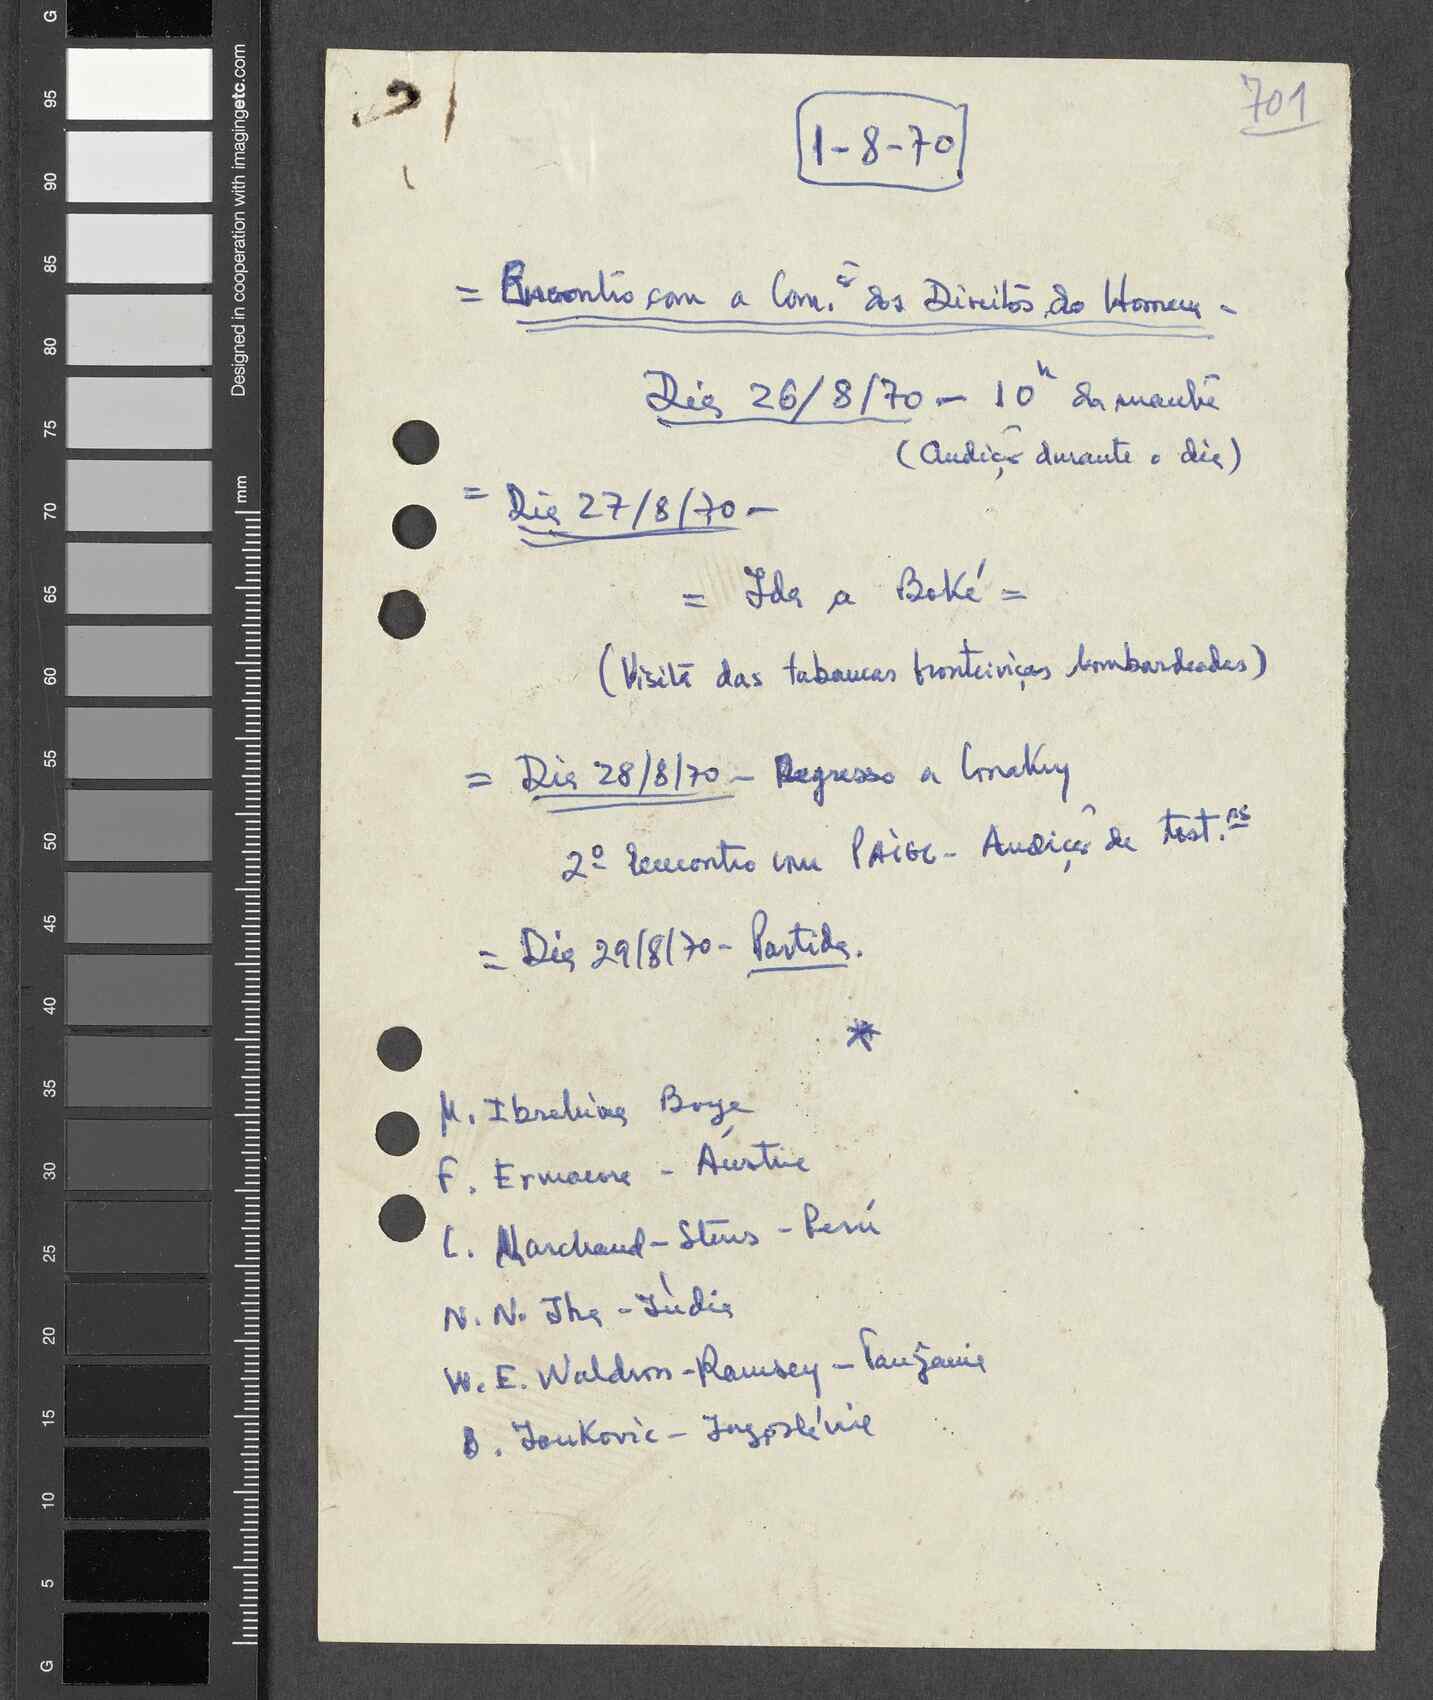 701
1-8-70
= Encontro com a Com.ão dos Direitos do Homem -
Dia 26/8/70 - 10h da manhã
(Audição durante o dia)
= Dia 27/8/70 -
= Ida a Boké =
(Visita das tabancas fronteiriças bombardeadas)
= Dia 28/8/70 - Regresso a Conakry
2º Encontro com PAIGC - Audição de test.as
= Dia 29/8/70 - Partida.
*
M. Ibrahima Boye
F. Ermacora - Áustria
L. Marchand-Stens - Perú
N. N. Jha - Índia
W. E. Waldron-Ramsey - Tanzania
B. Jankovic - Jugoslávia
Designed in cooperation with imagingetc.com
mm
G
95
90
85
80
75
70
65
60
55
50
45
40
35
30
25
20
15
10
5
G